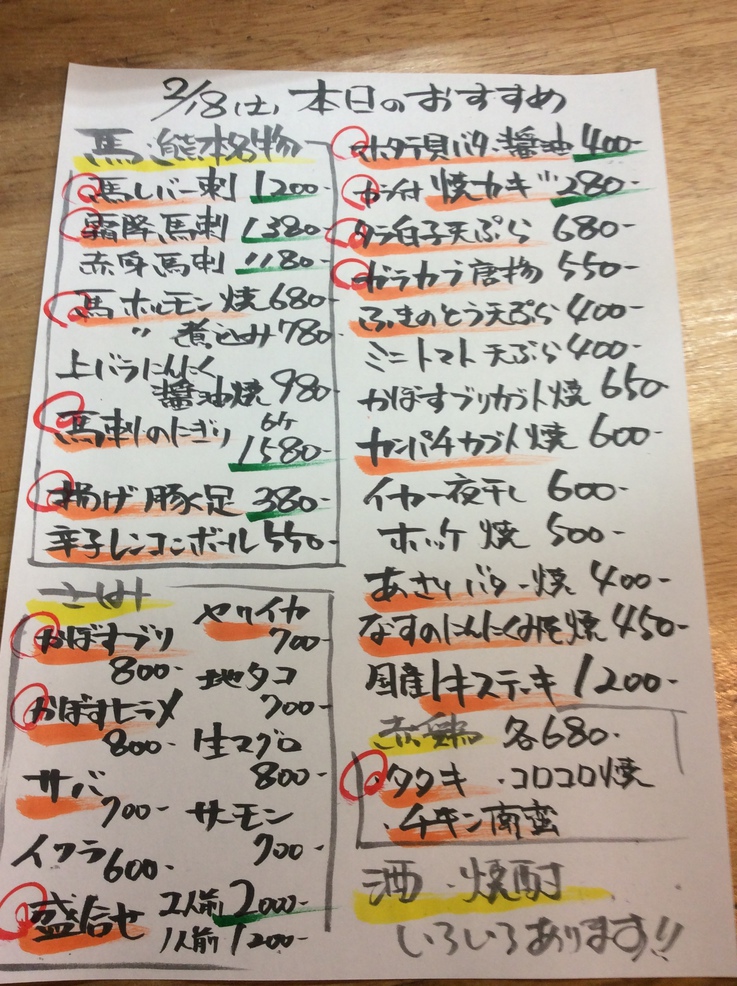 2/18(土)本日のおすすめ
馬・熊本名物
馬レバー刺 1200-
霜降馬刺 1380-
赤身馬刺 1180-
馬ホルモン焼 680-
〃 煮込み 780-
上バラにんにく
醤油焼 980-
馬刺しのにぎり 6ケ
1580-
揚げ豚足 380-
辛子レンコンボール 550-
さしみ
かぼすブリ
800-
かぼすヒラメ
800-
サバ
700-
イクラ 600-
ヤリイカ
700-
地タコ
700-
生マグロ
800-
サーモン
700-
盛合せ 2人前 2000-
1人前 1200-
ホタテ貝バター醤油 400-
カラ付 焼カキ 280-
タラ白子天ぷら 680-
ガラカブ唐揚 550-
ふきのとう天ぷら 400-
ミニトマト天ぷら 400-
かぼすブリカブト焼 650-
カンパチカブト焼 600-
イカ一夜干し 600-
ホッケ焼 500-
あさりバター焼 400-
なすのにんにくみそ焼 450-
国産牛ステーキ 1200-
赤鶏 各680-
・タタキ ・コロコロ焼
・チキン南蛮
酒・焼酎
いろいろあります!!